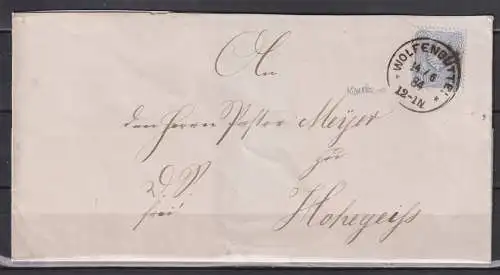 An
WOLFENBÜTTEL
14/6
84
12-1N
den Herrn Pastor Meyer
zu
D. S.
frei!
Hohegeiss